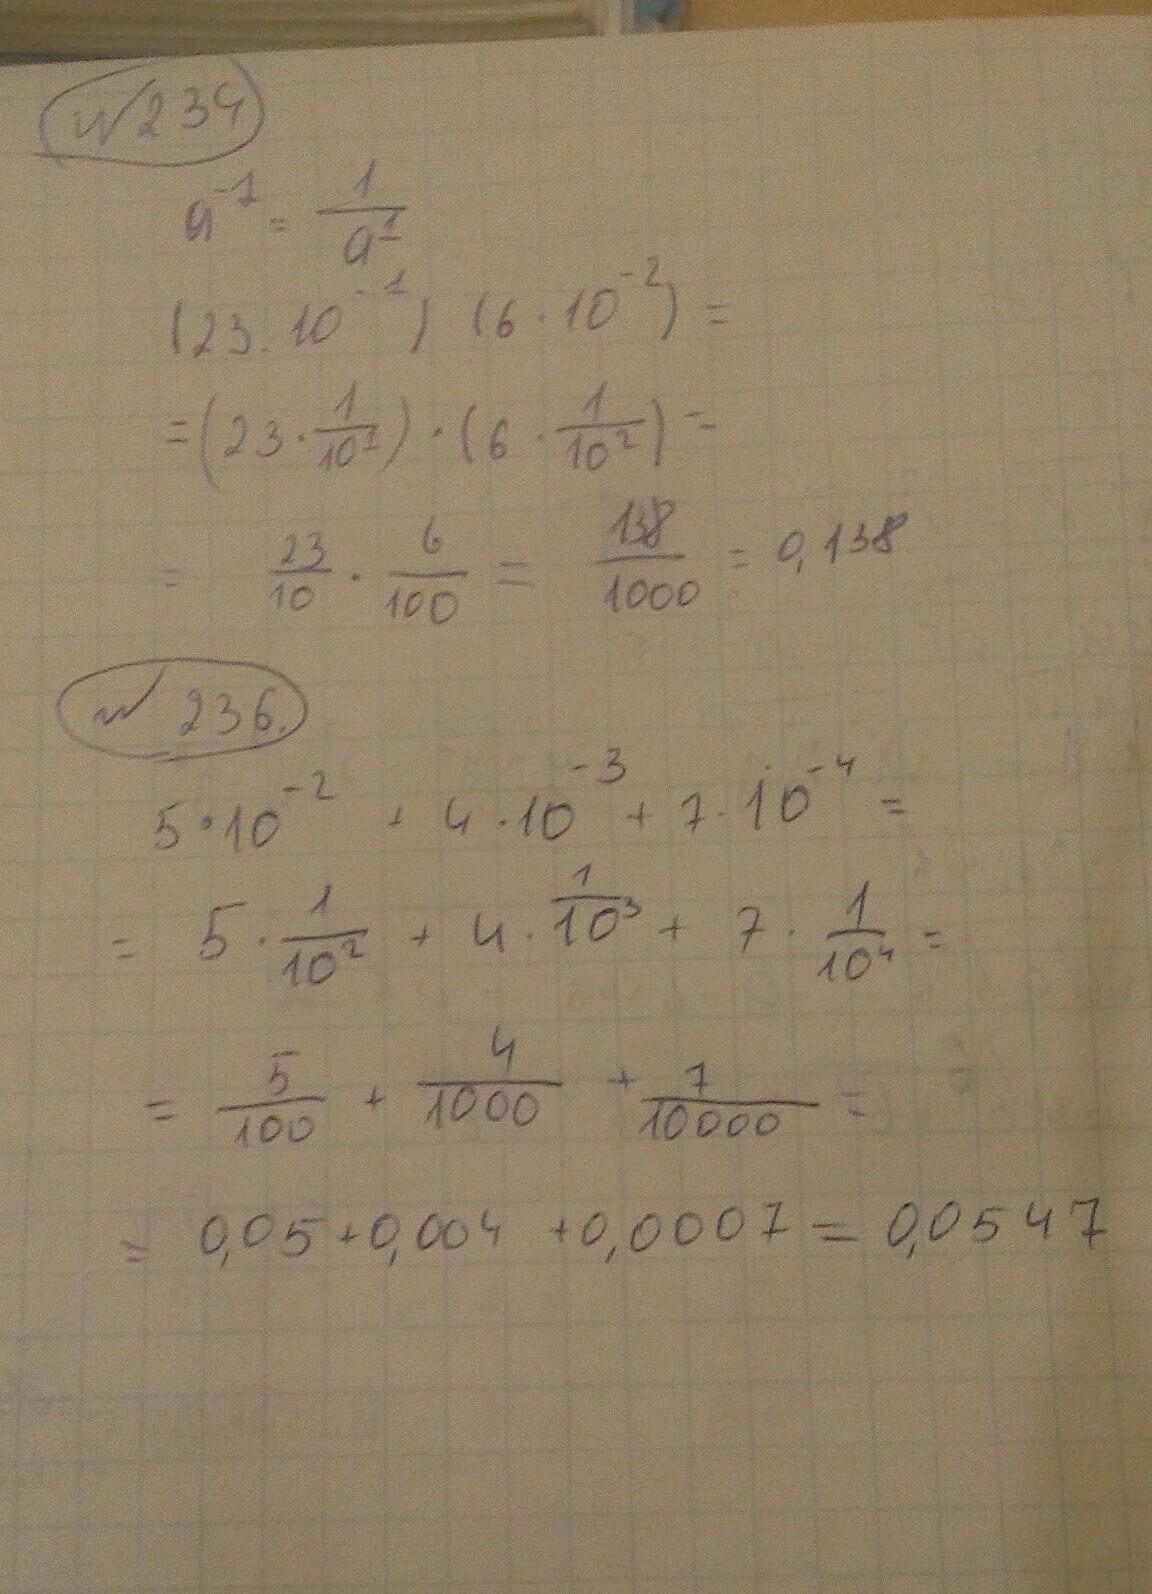 № 234
a⁻¹ = 1/a¹
(23 . 10⁻¹) (6 · 10⁻²) =
= (23 · 1/10¹) · (6 · 1/10²) =
= 23/10 · 6/100 = 138/1000 = 0,138
№ 236.
5 · 10⁻² + 4 · 10⁻³ + 7 · 10⁻⁴ =
= 5 · 1/10² + 4 · 1/10³ + 7 · 1/10⁴ =
= 5/100 + 4/1000 + 7/10000 =
= 0,05 + 0,004 + 0,0007 = 0,0547